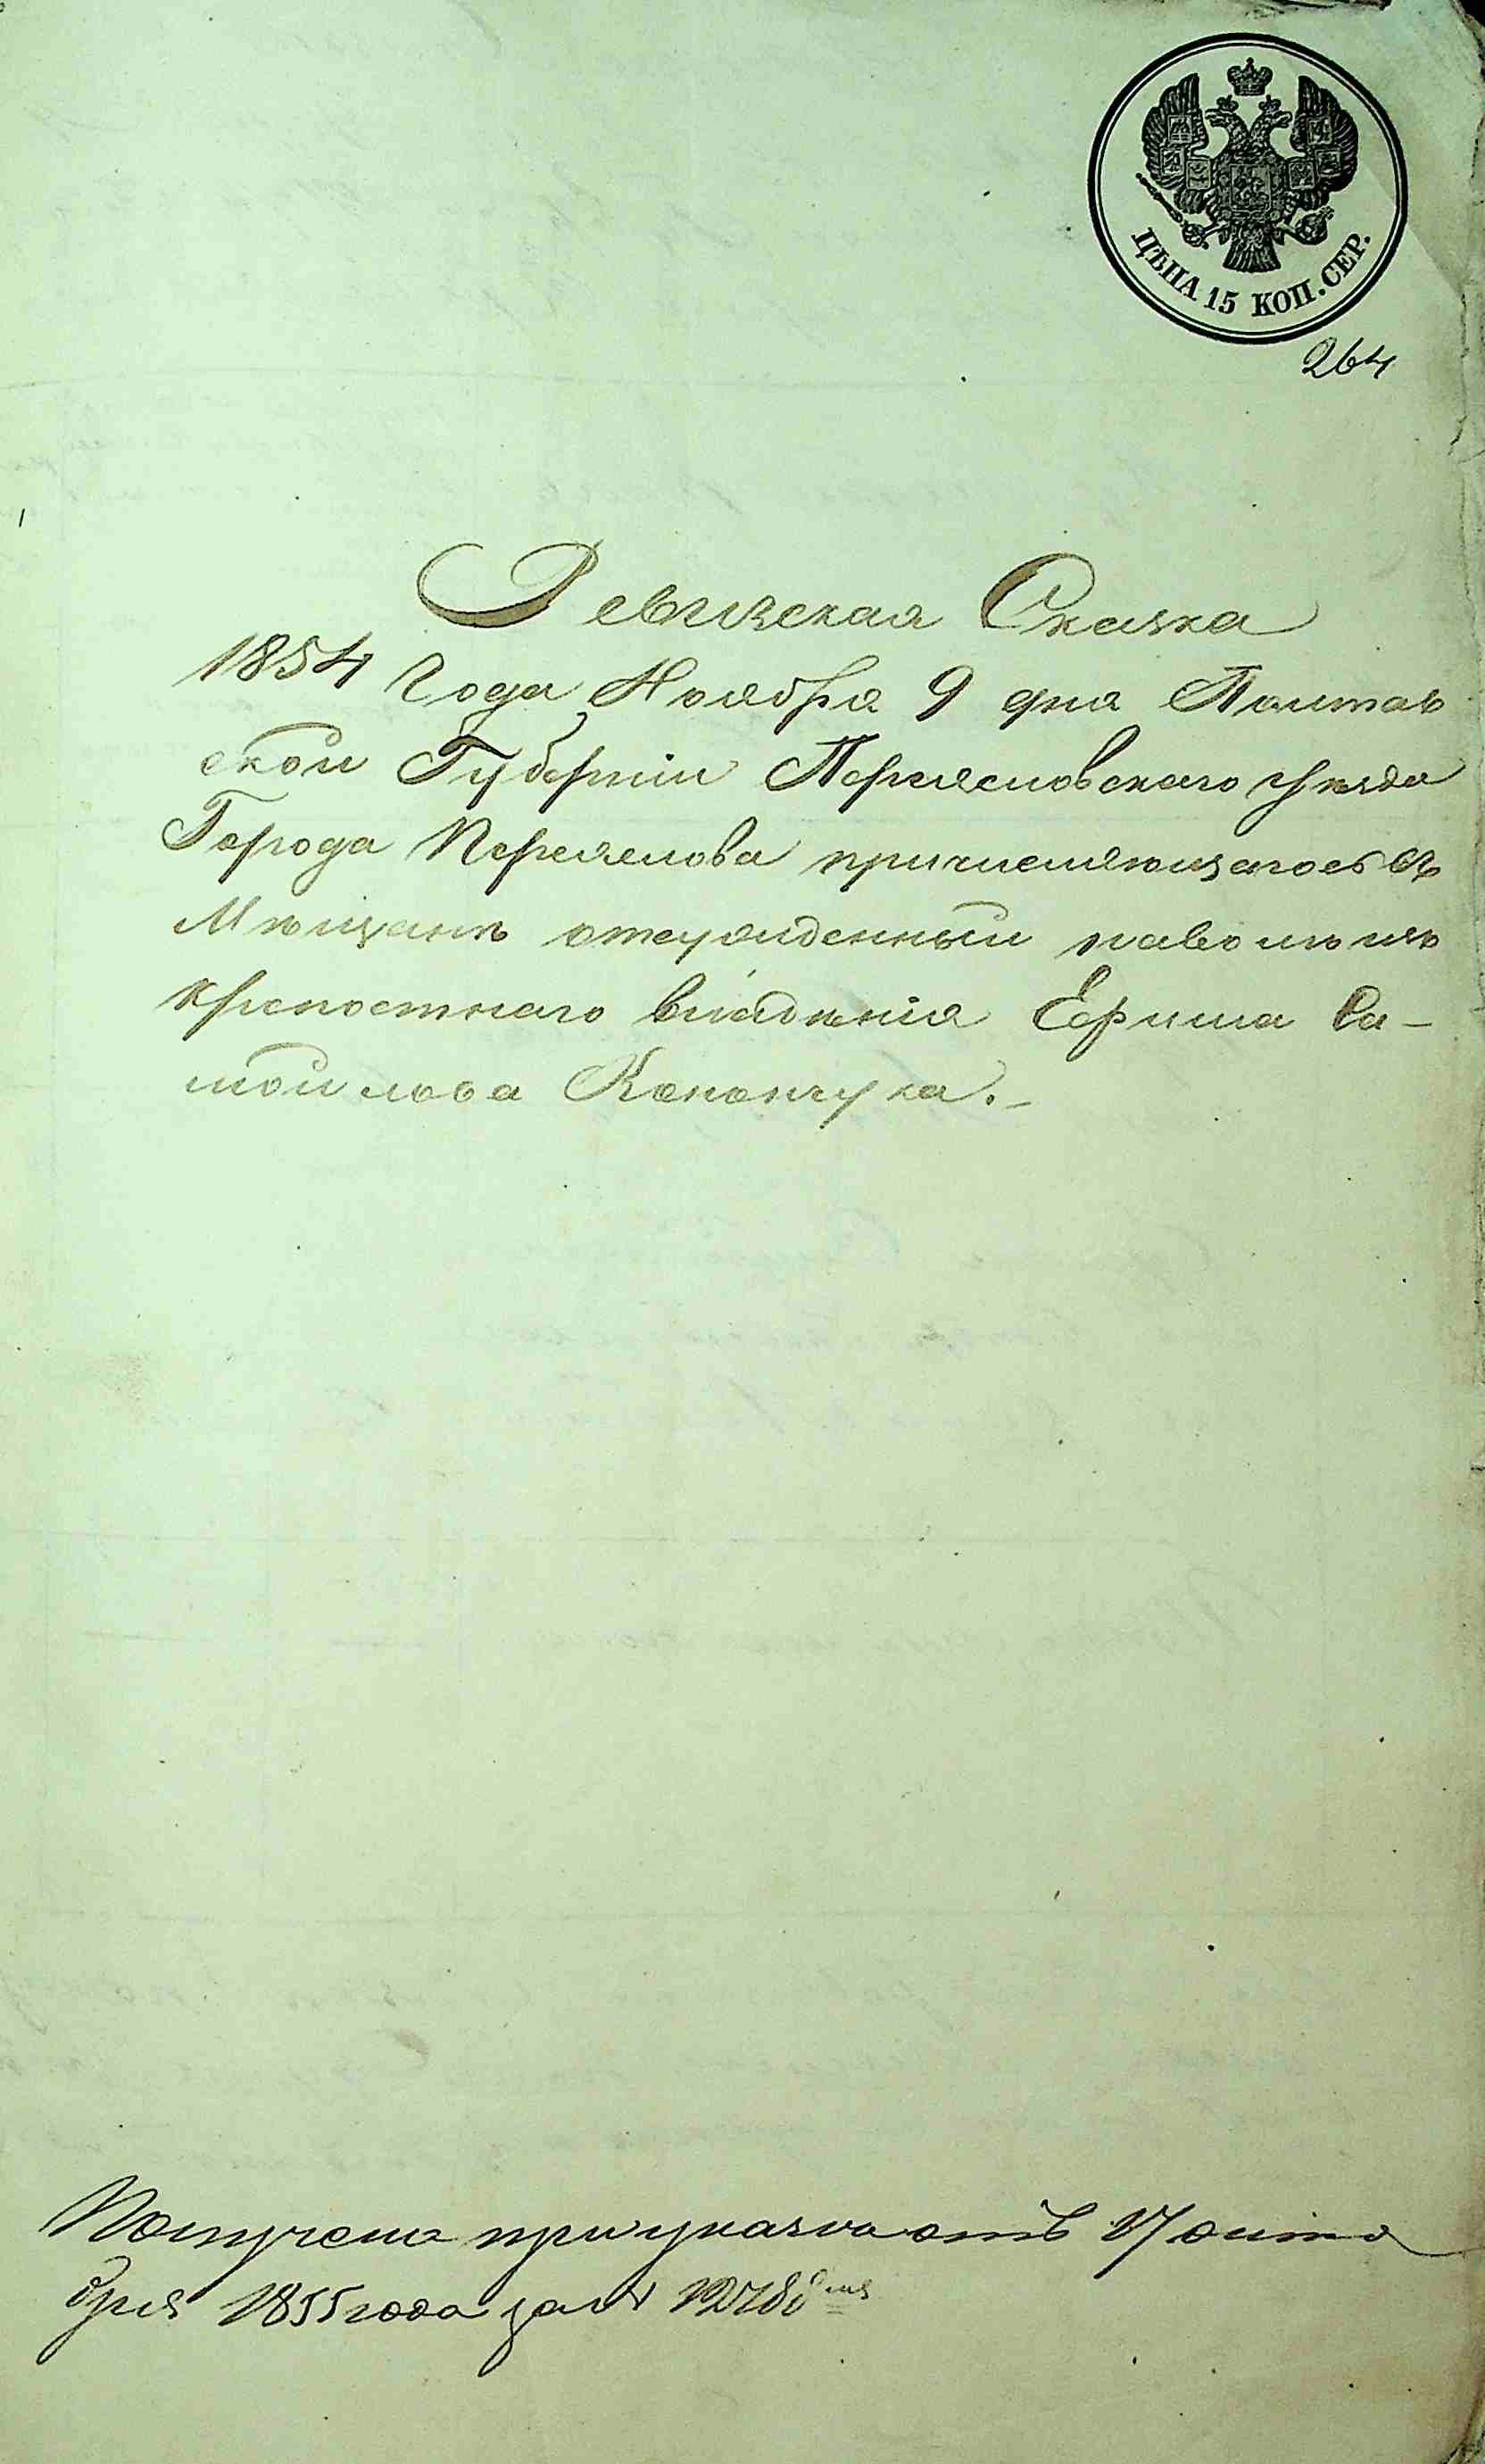 ЦѢНА 15 КОП. СЕР.
264
Ревизская Сказка
1854 Года Ноября 9 дня Полтав
ской Губерніи Переяславского уѣзда
Города Переяслова причисляющагось въ
Мѣщанѣ отсужденный наволю изъ
крепостнаго владѣнія Ефима Са-
мойлова Конончука.-
Получена при указѣ отъ 17 октя
бря 1855 года за №